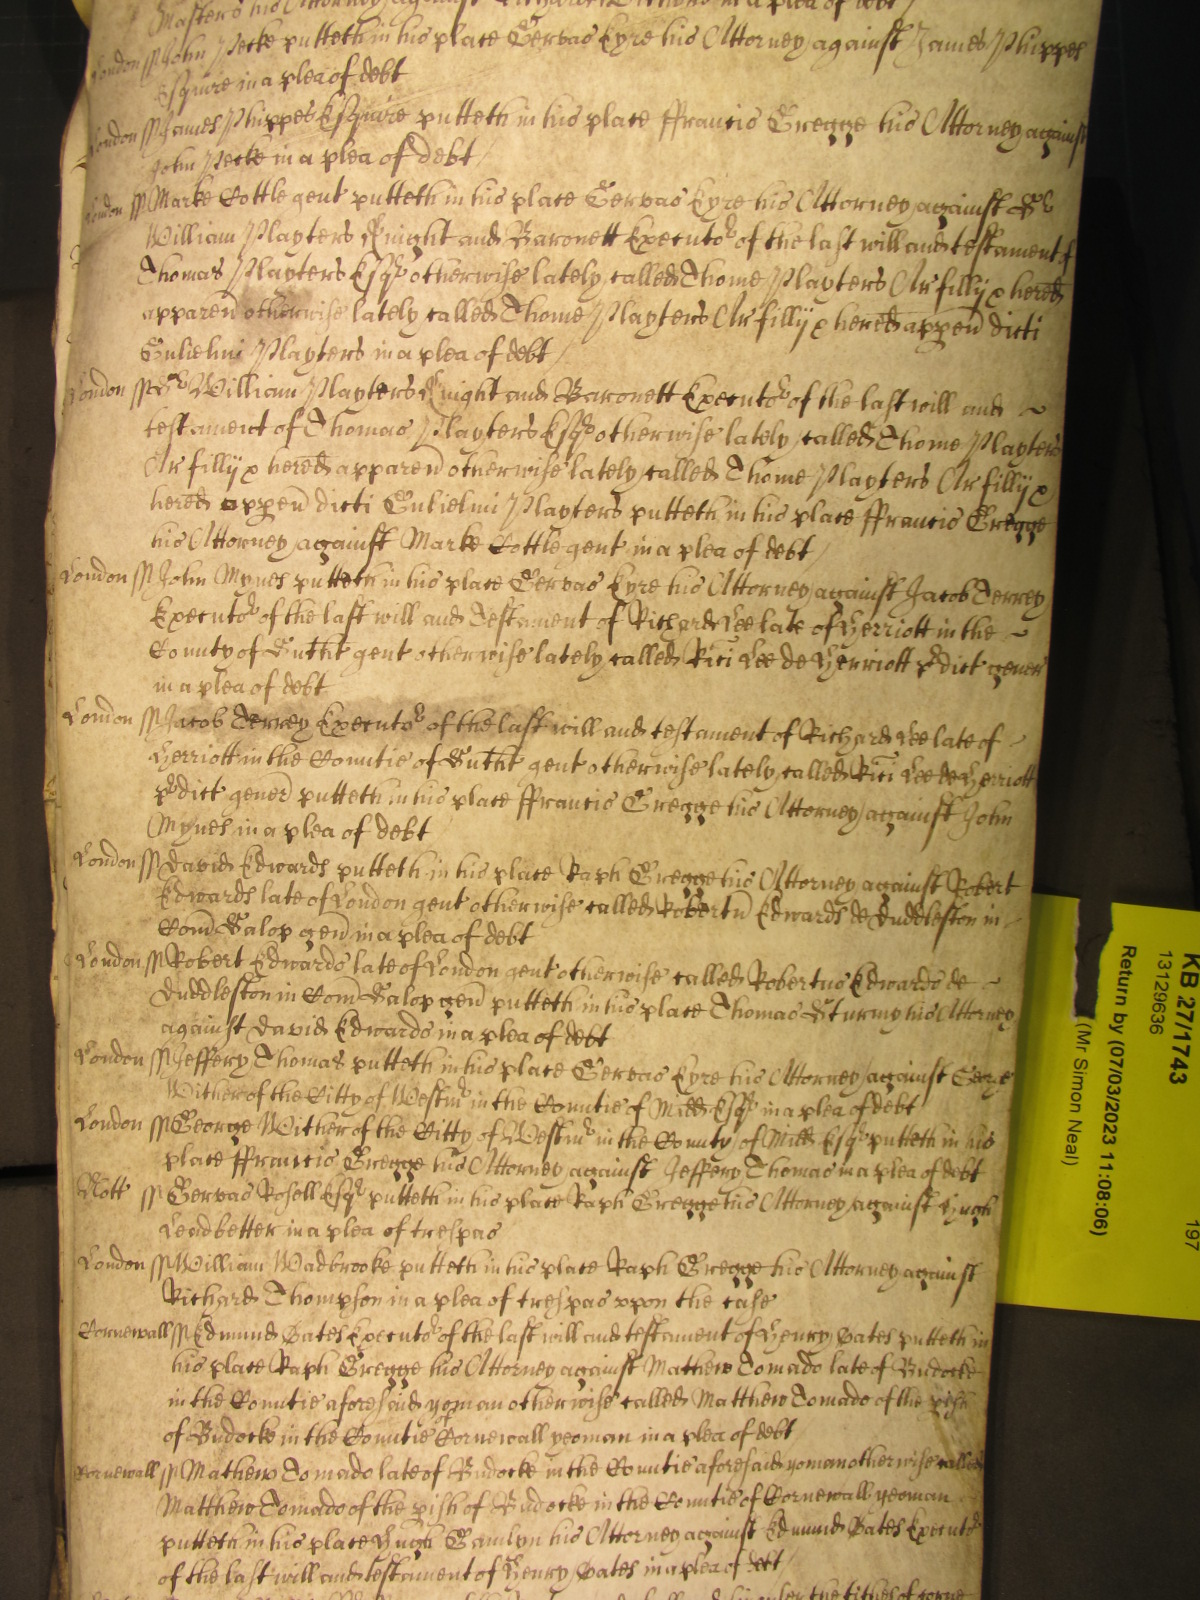 Masters his Attorney against Richard in a plea of debt
London ss John Pecke putteth in his place Gervas Eyre his Attorney against James Phippes
Esquire in a plea of debt
London ss James Phippes Esquire putteth in his place ffrancis Gregge his Attorney against
John Pecke in a plea of debt
London ss Marke Cottle gent putteth in his place Gervas Eyre his Attorney against Sr
William Playters Knight and Baronett Executor of the last will and testament of
Thomas Playters Esqr otherwise lately called Thome Playters Ar filly & hered
apparen otherwise lately called Thome Playters Ar filly & hered appen dicti
Gulielmi Playters in a plea of debt
London ss Sr William Playters Knight and Baronett Executor of the last will and
testament of Thomas Playters Esqr otherwise lately called Thome Playters
Ar filly & hered apparen otherwise lately called Thome Playters Ar filly &
hered appen dicti Gulielmi Playters putteth in his place ffrancis Gregge
his Attorney against Marke Cottle gent in a plea of debt
London ss John Mynes putteth in his place Gervas Eyre his Attorney against Jacob Terrey
Executor of the last will and Testament of Richard Lee late of Herriott in the
County of Sutht gent otherwise lately called Rici Lee de Herriott pdict gener
in a plea of debt
London ss Jacob Terrey Executor of the last will and testament of Richard Lee late of
Herriott in the Countie of Sutht gent otherwise lately called Rici Lee de Herriott
pdict gener putteth in his place ffrancis Gregge his Attorney against John
Mynes in a plea of debt
London ss David Edwards putteth in his place Raph Gregge his Attorney against Robert
Edwards late of London gent otherwise called Robertu Edwards de Duddleston in
Com Salop gen in a plea of debt
London ss Robert Edwards late of London gent otherwise called Robertus Edwards de
Duddleston in Com Salop gen putteth in his place Thomas Sturmy his Attorney
against David Edwards in a plea of debt
London ss Jeffery Thomas putteth in his place Gervas Eyre his Attorney against George
Wither of the Citty of Westmr in the Countie of Midd Esqr in a plea of debt
London ss George Wither of the Citty of Westmr in the County of Midd Esqr putteth in his
place ffrancis Gregge his Attorney against Jeffery Thomas in a plea of debt
Nott ss Gervas Rosell Esqr putteth in his place Raph Gregge his Attorney against Hugh
Leadbetter in a plea of trespas
London ss William Wadbrooke putteth in his place Raph Gregge his Attorney against
Richard Thompson in a plea of trespas vpon the case
Cornewall ss Edmund Bates Executor of the last will and testament of Henry Bates putteth in
his place Raph Gregge his Attorney against Mathew Tomado late of Budocke
in the Countie aforesaid yoman otherwise called Matthew Tomado of the pish
of Budocke in the Countie Cornewall yeoman in a plea of debt
Cornewall ss Mathew Tomado late of Budocke in the Countie aforesaid yoman otherwise called
Matthew Tomado of the pish of Budocke in the Countie of Cornewall yeoman
putteth in his place Hugh Gamlyn his Attorney against Edmund Bates Executor
of the last will and testament of Henry Bates in a plea of debt
KB 27/1743
13129636
Return by (07/03/2023 11:08:06)
(Mr Simon Neal)
197